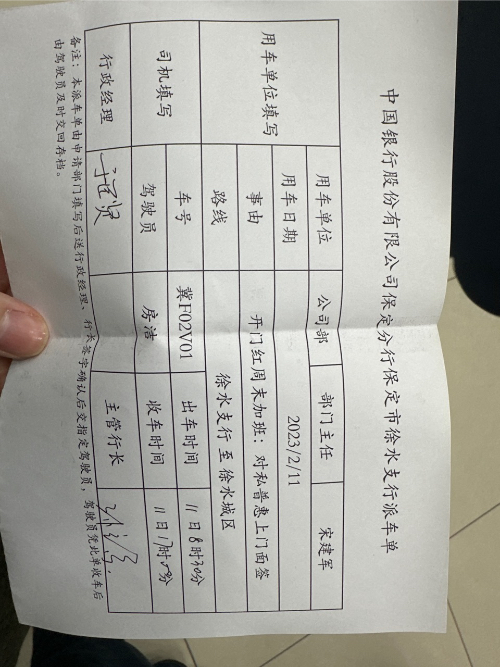 中国银行股份有限公司保定分行保定市徐水支行派车单
用车单位填写 用车单位 公司部 部门主任 宋建军
用车日期 2023/2/11
事由 开门红周末加班：对私普惠上门面签
路线 徐水支行 至 徐水城区
司机填写 车号 冀F02V01 出车时间 11日8时30分
驾驶员 房洁 收车时间 11日17时0分
行政经理 主管行长
备注：本派车单由申请部门填写后送行政经理、行长签字确认后交指定驾驶员，驾驶员凭此单收车后
由驾驶员及时交回存档。